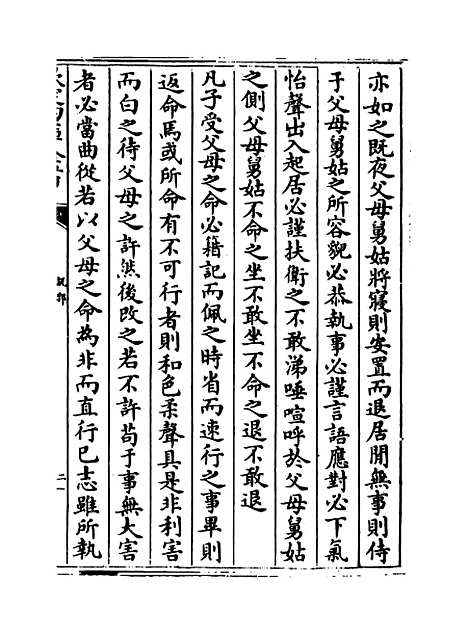 亦如之既夜父母舅姑將寢則安置而退居閒無事則侍
于父母舅姑之所容貌必恭執事必謹言語應對必下氣
怡聲出入起居必謹扶衛之不敢涕唾喧呼於父母舅姑
之側父母舅姑不命之坐不敢坐不命之退不敢退
凡子受父母之命必籍記而佩之時省而速行之事畢則
返命焉或所命有不可行者則和色柔聲具是非利害
而白之待父母之許然後改之若不許苟于事無大害
者必當曲從若以父母之命為非而直行已志雖所執